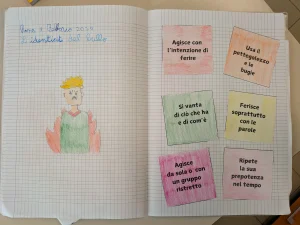 L'identikit del bullo
Agisce con
l'intenzione di
ferire
Usa il
pettegolezzo
e le
bugie
Si vanta
di ciò che ha
e di com'è
Ferisce
soprattutto
con le
parole
Agisce
da solo o con
un gruppo
ristretto
Ripete
la sua
prepotenza
nel tempo